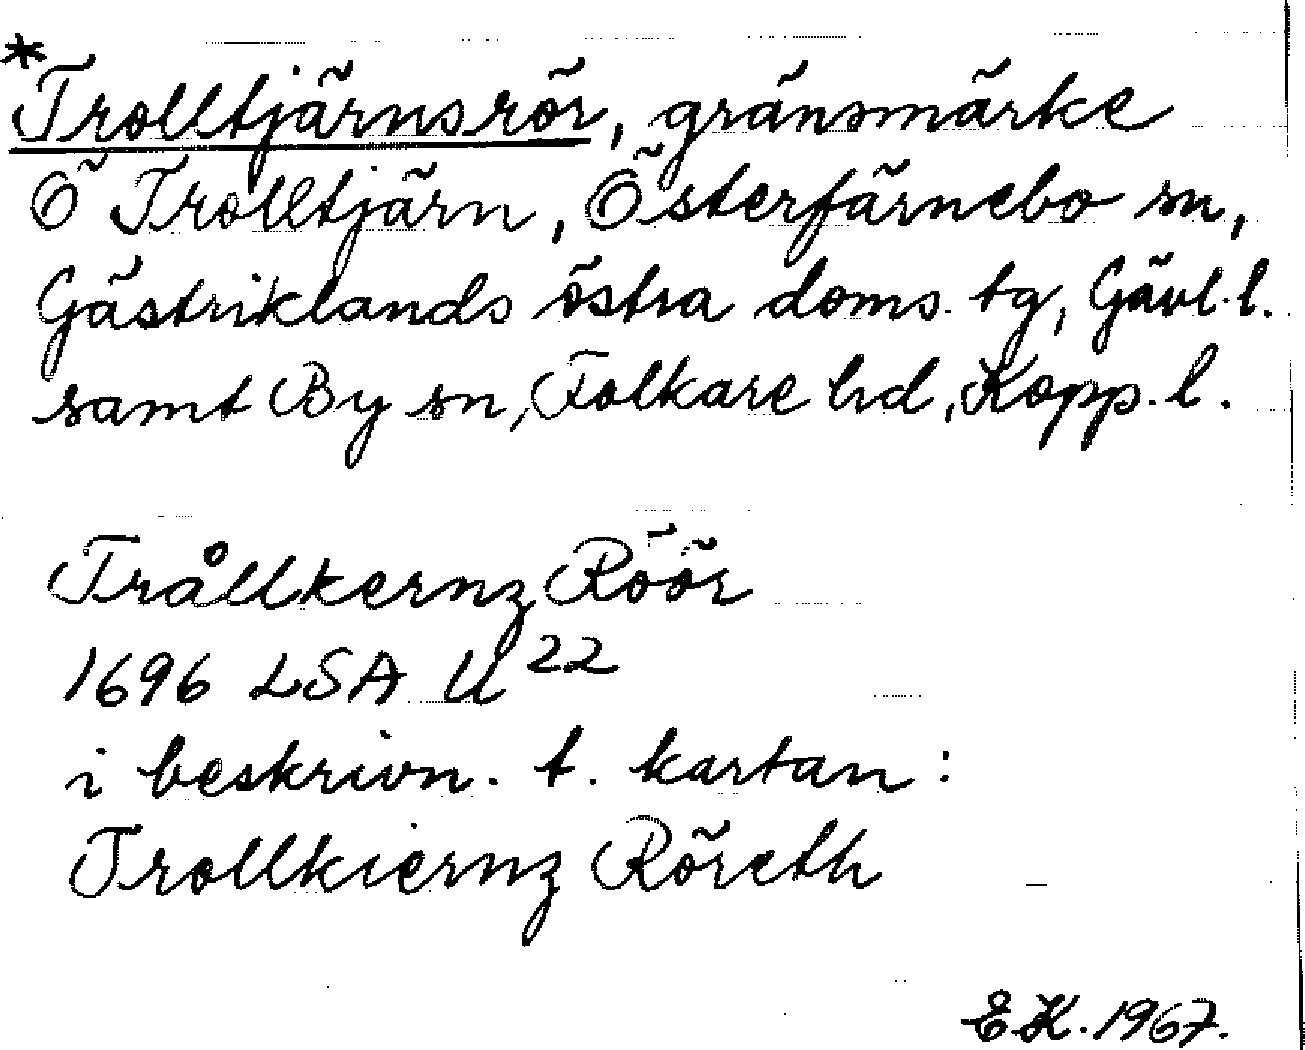 *Trolltjärnsrör, gränsmärke
Ö Trolltjärn, Österfärnebo sn,
Gästriklands östra doms. tg, Gävl. l.
samt By sn, Folkare hd, Kopp. l.
Trållkernz Röör
1696 LSA U²²
i beskrivn. t. kartan:
Trollkiernz Röreth
E.K. 1967.